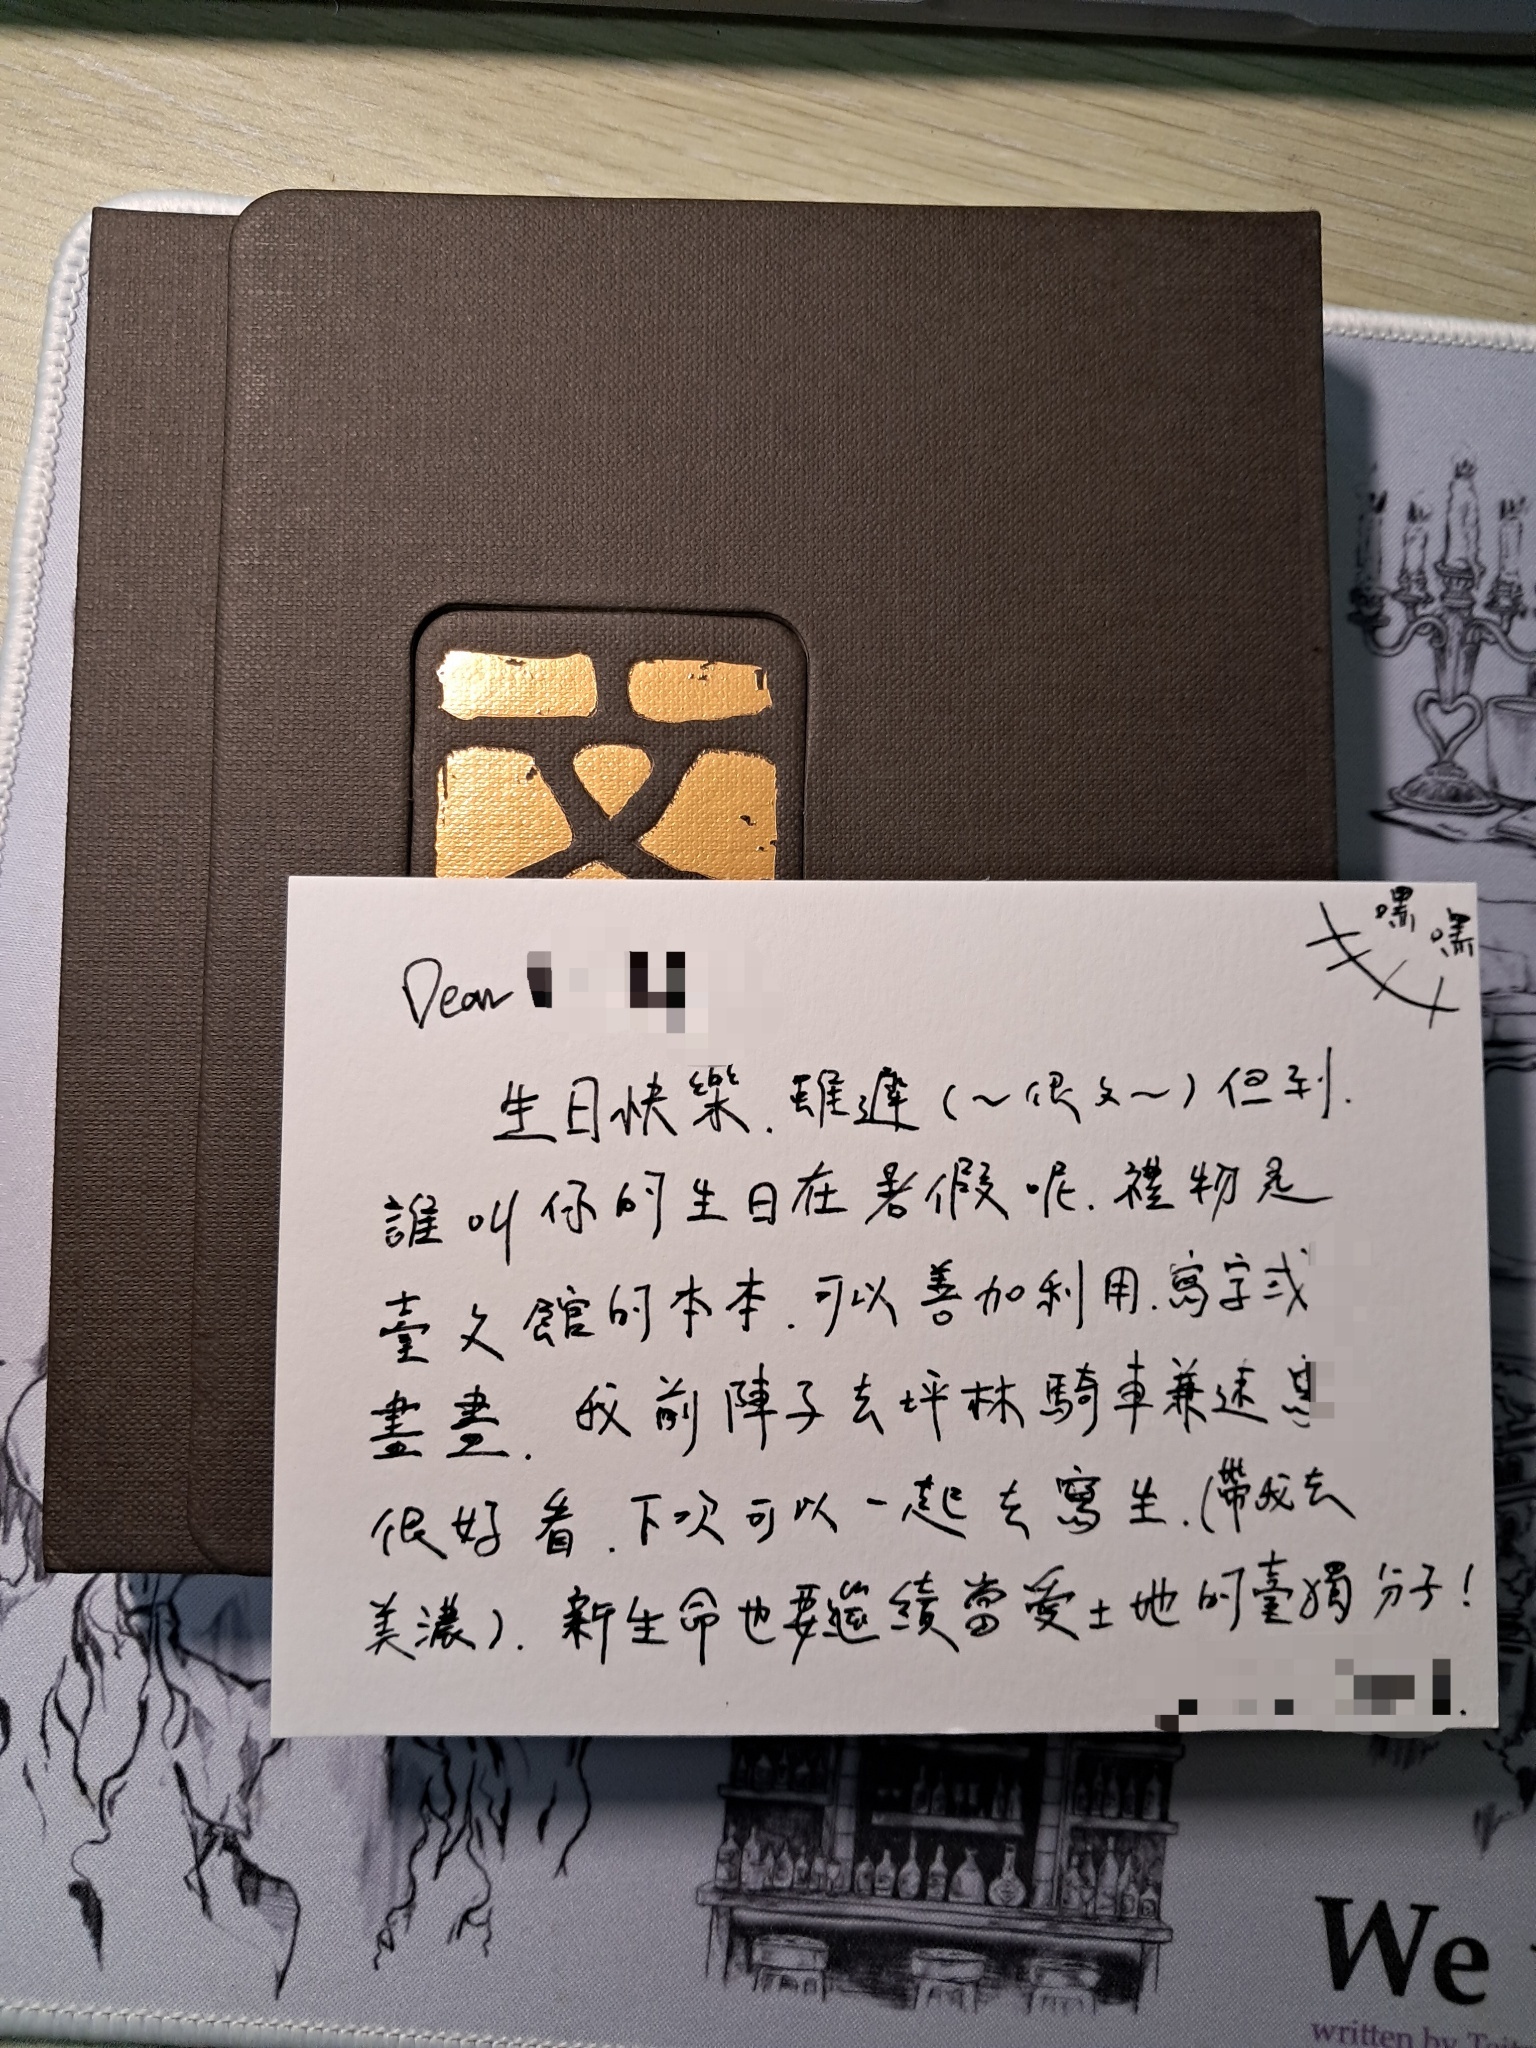 嘿嘿
Dear
生日快樂.雖遲(～很久～)但到.
誰叫你的生日在暑假呢.禮物是
臺文館的本本.可以善加利用.寫字或
畫畫.我前陣子去坪林騎車兼速寫
很好看.下次可以一起去寫生.(帶我去
美濃).新生命也要繼續當愛土地的臺獨分子!
We
written by